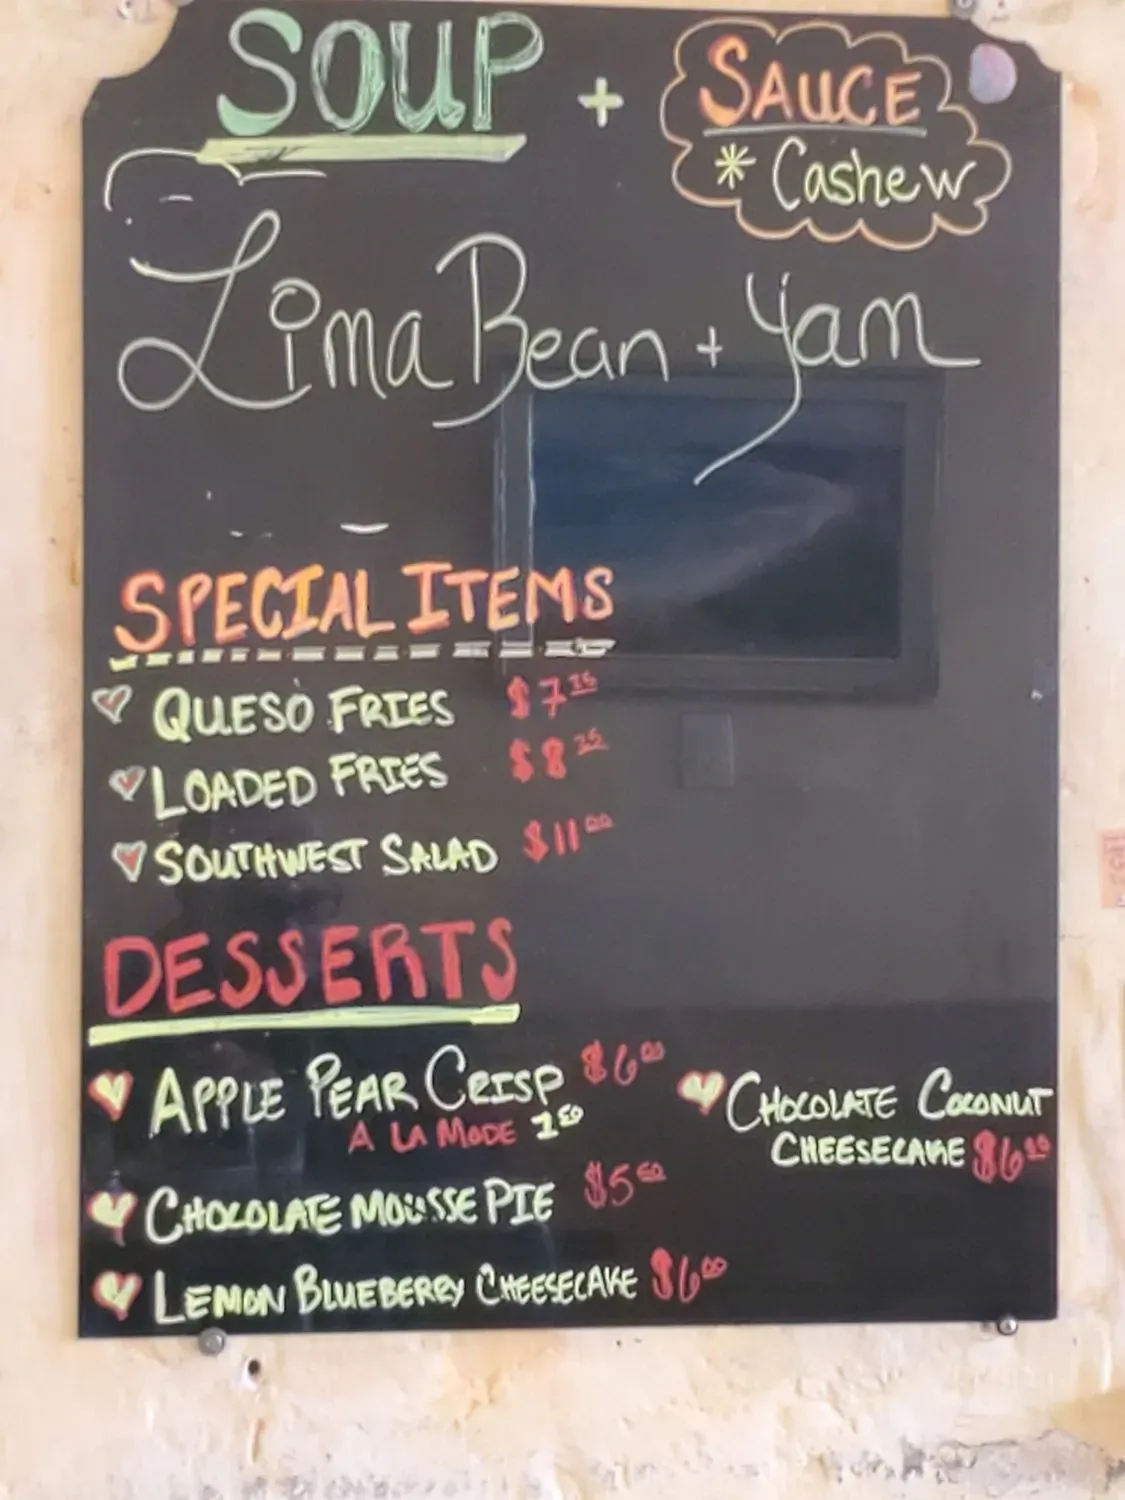 SOUP + SAUCE
* Cashew
Lima Bean + Yam
SPECIAL ITEMS
QUESO FRIES $7
LOADED FRIES $8 25
SOUTHWEST SALAD $11 00
DESSERTS
APPLE PEAR CRISP $6 00
A LA MODE 1 50
CHOCOLATE COCONUT
CHEESECAKE $6 00
CHOCOLATE MOUSSE PIE $5 50
LEMON BLUEBERRY CHEESECAKE $6 00